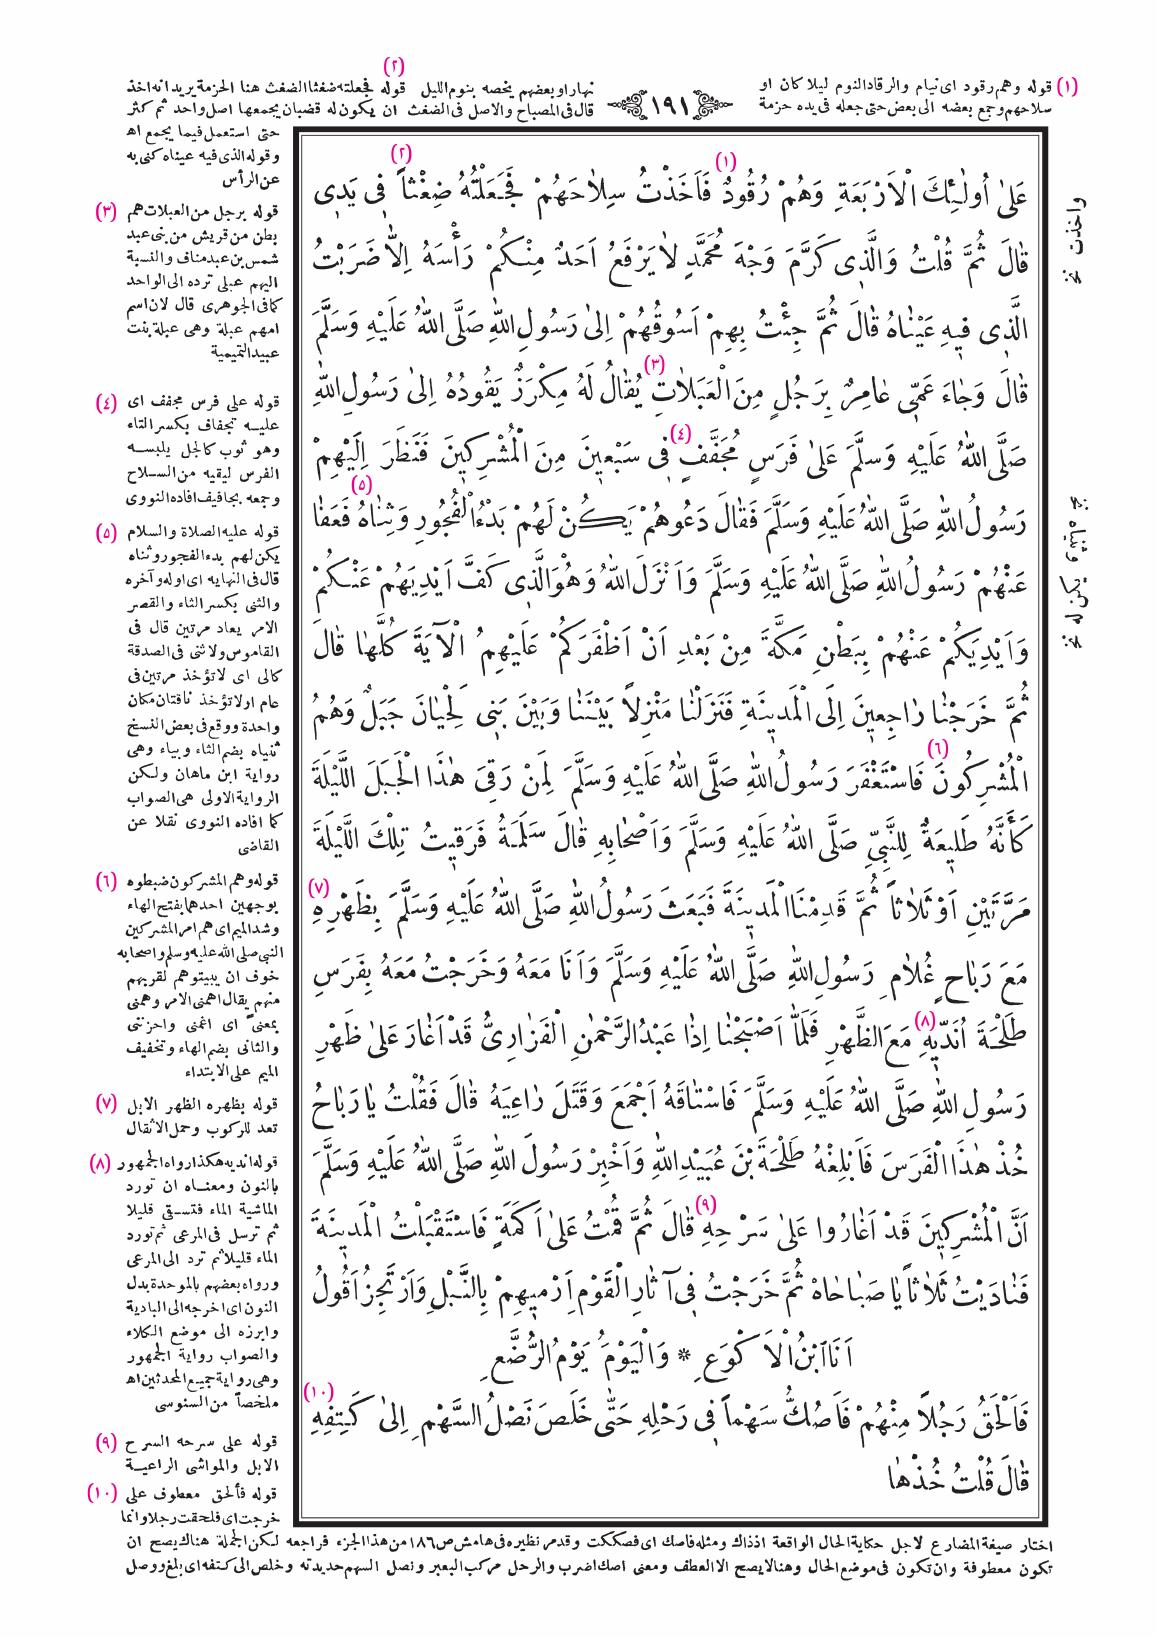 (١) قوله وهم رقود اى نيام والرقاد النوم ليلا كان او
نهارا وبعضهم يخصه بنوم الليل
(٢) قوله فجعلته ضغثا الضغث هنا الحزمة يريد انه اخذ
سلاحهم وجمع بعضه الى بعض حتى جعله فى يده حزمة
قال فى المصباح والاصل فى الضغث ان يكون له قضبان يجمعها اصل واحد ثم كثر
حتى استعمل فيما يجمع اه
وقوله الذى فيه عيناه كنى به
عن الرأس
١٩١
عَلىٰ اُولٰئِكَ الْاَرْبَعَةِ وَهُمْ رُقُودٌ (١) فَاَخَذْتُ سِلاٰحَهُمْ فَجَعَلْتُهُ ضِغْثاً (٢) فى يَدِى
قٰالَ ثُمَّ قُلْتُ وَالَّذِى كَرَّمَ وَجْهَ مُحَمَّدٍ لاٰ يَرْفَعُ اَحَدٌ مِنْكُمْ رَأْسَهُ اِلاّٰ ضَرَبْتُ
الَّذِى فيهِ عَيْنٰاهُ قٰالَ ثُمَّ جِئْتُ بِهِمْ اَسُوقُهُمْ اِلىٰ رَسُولِ اللّٰهِ صَلَّى اللّٰهُ عَلَيْهِ وَسَلَّمَ
قٰالَ وَجٰاءَ عَمّى عٰامِرٌ بِرَجُلٍ مِنَ الْعَبَلاٰتِ (٣) يُقٰالُ لَهُ مِكْرَزٌ يَقُودُهُ اِلىٰ رَسُولِ اللّٰهِ
صَلَّى اللّٰهُ عَلَيْهِ وَسَلَّمَ عَلىٰ فَرَسٍ مُجَفَّفٍ (٤) فى سَبْعينَ مِنَ الْمُشْرِكينَ فَنَظَرَ اِلَيْهِمْ
رَسُولُ اللّٰهِ صَلَّى اللّٰهُ عَلَيْهِ وَسَلَّمَ فَقٰالَ دَعُوهُمْ يَكُنْ لَهُمْ بَدْءُ الْفُجُورِ وَثِنٰاهُ (٥) فَعَفٰا
عَنْهُمْ رَسُولُ اللّٰهِ صَلَّى اللّٰهُ عَلَيْهِ وَسَلَّمَ وَاَنْزَلَ اللّٰهُ وَهُوَ الَّذِى كَفَّ اَيْدِيَهُمْ عَنْكُمْ
وَاَيْدِيَكُمْ عَنْهُمْ بِبَطْنِ مَكَّةَ مِنْ بَعْدِ اَنْ اَظْفَرَكُمْ عَلَيْهِمُ الْآيَةَ كُلَّهٰا قٰالَ
ثُمَّ خَرَجْنٰا رٰاجِعينَ اِلَى الْمَدينَةِ فَنَزَلْنٰا مَنْزِلاً بَيْنَنٰا وَبَيْنَ بَنى لَحْيٰانَ جَبَلٌ وَهُمُ
الْمُشْرِكُونَ (٦) فَاسْتَغْفَرَ رَسُولُ اللّٰهِ صَلَّى اللّٰهُ عَلَيْهِ وَسَلَّمَ لِمَنْ رَقِىَ هٰذَا الْجَبَلَ اللَّيْلَةَ
كَأَنَّهُ طَليعَةٌ لِلنَّبِىِّ صَلَّى اللّٰهُ عَلَيْهِ وَسَلَّمَ وَاَصْحٰابِهِ قٰالَ سَلَمَةُ فَرَقيتُ تِلْكَ اللَّيْلَةَ
مَرَّتَيْنِ اَوْ ثَلاٰثاً ثُمَّ قَدِمْنَا الْمَدينَةَ فَبَعَثَ رَسُولُ اللّٰهِ صَلَّى اللّٰهُ عَلَيْهِ وَسَلَّمَ بِظَهْرِهِ (٧)
مَعَ رَبٰاحٍ غُلاٰمِ رَسُولِ اللّٰهِ صَلَّى اللّٰهُ عَلَيْهِ وَسَلَّمَ وَاَنَا مَعَهُ وَخَرَجْتُ مَعَهُ بِفَرَسِ
طَلْحَةَ اُنَدّيهِ (٨) مَعَ الظَّهْرِ فَلَمّٰا اَصْبَحْنٰا اِذٰا عَبْدُ الرَّحْمٰنِ الْفَزٰارِىُّ قَدْ اَغٰارَ عَلىٰ ظَهْرِ
رَسُولِ اللّٰهِ صَلَّى اللّٰهُ عَلَيْهِ وَسَلَّمَ فَاسْتٰاقَهُ اَجْمَعَ وَقَتَلَ رٰاعِيَهُ قٰالَ فَقُلْتُ يٰا رَبٰاحُ
خُذْ هٰذَا الْفَرَسَ فَاَبْلِغْهُ طَلْحَةَ بْنَ عُبَيْدِ اللّٰهِ وَاَخْبِرْ رَسُولَ اللّٰهِ صَلَّى اللّٰهُ عَلَيْهِ وَسَلَّمَ
اَنَّ الْمُشْرِكينَ قَدْ اَغٰارُوا عَلىٰ سَرْحِهِ (٩) قٰالَ ثُمَّ قُمْتُ عَلىٰ اَكَمَةٍ فَاسْتَقْبَلْتُ الْمَدينَةَ
فَنٰادَيْتُ ثَلاٰثاً يٰا صَبٰاحٰاهْ ثُمَّ خَرَجْتُ فى آثٰارِ الْقَوْمِ اَرْميهِمْ بِالنَّبْلِ وَاَرْتَجِزُ اَقُولُ
اَنَا ابْنُ الْاَكْوَعِ * وَالْيَوْمَ يَوْمُ الرُّضَّعِ
فَاَلْحَقُ (١٠) رَجُلاً مِنْهُمْ فَاَصُكُّ سَهْماً فى رَحْلِهِ حَتّٰى خَلَصَ نَصْلُ السَّهْمِ اِلىٰ كَتِفِهِ
قٰالَ قُلْتُ خُذْهٰا
واخذت نخ
يكن له نخ
وثنياه نخ
(٣) قوله برجل من العبلات هم
بطن من قريش من بنى عبد
شمس بن عبد مناف والنسبة
اليهم عبلى ترده الى الواحد
كما فى الجوهرى قال لان اسم
امهم عبلة وهى عبلة بنت
عبيد التميمية
(٤) قوله على فرس مجفف اى
عليه تجفاف بكسر التاء
وهو ثوب كالجل يلبسه
الفرس ليقيه من السلاح
وجمعه تجافيف افاده النووى
(٥) قوله عليه الصلاة والسلام
يكن لهم بدء الفجور وثناه
قال فى النهايه اى اوله وآخره
والثنى بكسر الثاء والقصر
الامر يعاد مرتين قال فى
القاموس ولا ثنى فى الصدقة
كالى اى لا تؤخذ مرتين فى
عام او لا تؤخذ ناقتان مكان
واحدة ووقع فى بعض النسخ
ثنياه بضم الثاء وبياء وهى
رواية ابن ماهان ولكن
الرواية الاولى هى الصواب
كما افاده النووى نقلا عن
القاضى
(٦) قوله وهم المشركون ضبطوه
بوجهين احدهما بفتح الهاء
وشد الميم اى هم امر المشركين
النبى صلى الله عليه وسلم واصحابه
خوف ان يبيتوهم لقربهم
منهم يقال اهمنى الامر وهمنى
بمعنىً اى اغمنى واحزننى
والثانى بضم الهاء وتخفيف
الميم على الابتداء
(٧) قوله بظهره الظهر الابل
تعد للركوب وحمل الاثقال
(٨) قوله انديه هكذا رواه الجمهور
بالنون ومعناه ان تورد
الماشية الماء فتسقى قليلا
ثم ترسل فى المرعى ثم تورد
الماء قليلا ثم ترد الى المرعى
ورواه بعضهم بالموحدة بدل
النون اى اخرجه الى البادية
وابرزه الى موضع الكلاء
والصواب رواية الجمهور
وهى رواية جميع المحدثين اه
ملخصاً من السنوسى
(٩) قوله على سرحه السرح
الابل والمواشى الراعية
(١٠) قوله فألحق معطوف على
خرجت اى فلحقت رجلا وانما
اختار صيغة المضارع لاجل حكاية الحال الواقعة اذذاك ومثله فاصك اى فصككت وقد مر نظيره فى هامش ص ١٨٦ من هذا الجزء فراجعه لكن الجملة هناك يصح ان
تكون معطوفة وان تكون فى موضع الحال وهنا لا يصح الا العطف ومعنى اصك اضرب والرحل مركب البعير ونصل السهم حديدته وخلص الى كتفه اى بلغ ووصل